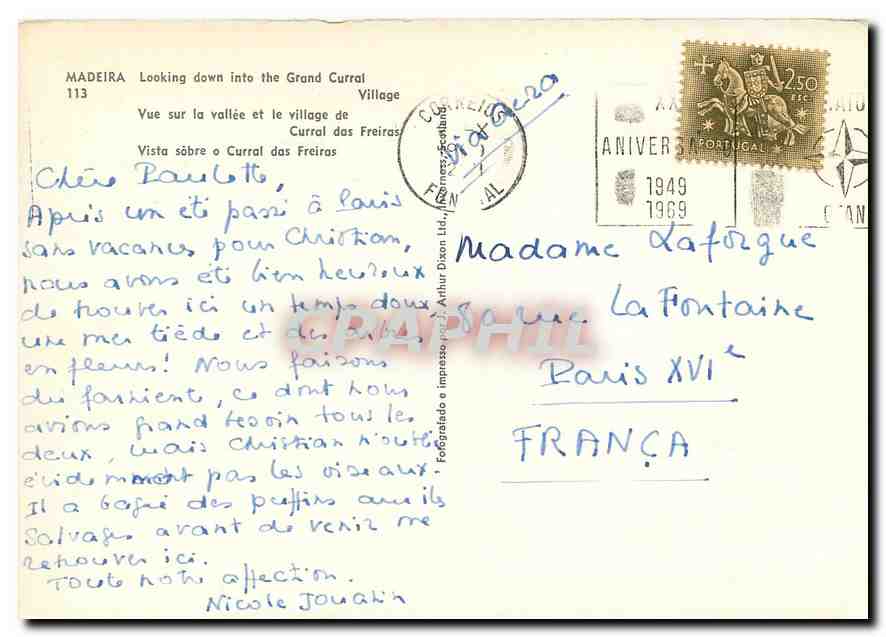 MADEIRA Looking down into the Grand Curral
113 Village
Vue sur la vallée et le village de
Curral das Freiras
Vista sôbre o Curral das Freiras
Chère Paulette,
Après un été passé à Paris
sans vacances pour Christian,
nous avons été bien heureux
de trouver ici un temps doux,
une mer tiède et des arbres
en fleurs! Nous faisons
du farniente, ce dont nous
avions grand besoin tous les
deux, mais Christian n'oublie
évidemment pas les oiseaux.
Il a bagué des puffins aux îles
Salvages avant de venir me
retrouver ici.
Toute notre affection.
Nicole Jouanin
Fotografado e impresso por J. Arthur Dixon Ltd., Inverness, Scotland
CORREIOS
FUNCHAL
Via aérea
XX
ANIVERS
1949
1969
OTAN
2$50
ESC.
PORTUGAL
Madame Laforgue
rue La Fontaine
Paris XVIe
FRANÇA
CPAPHIL